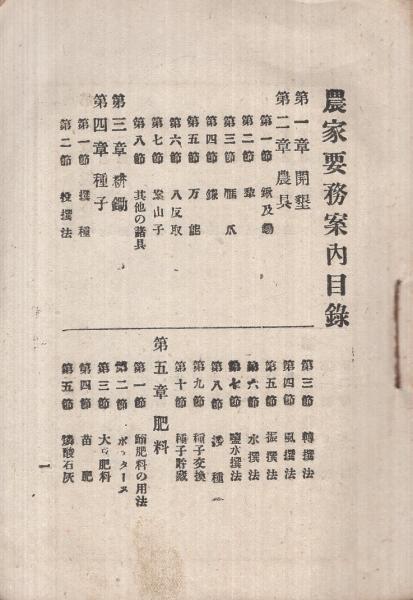 農家要務案內目錄
第一章 開墾
第二章 農具
第一節 鍬及鋤
第二節 犂
第三節 雁爪
第四節 鎌
第五節 万能
第六節 八反取
第七節 案山子
第八節 其他の諸具
第三章 耕鋤
第四章 種子
第一節 撰種
第二節 投撰法
第三節 轉撰法
第四節 風撰法
第五節 振撰法
第六節 水撰法
第七節 鹽水撰法
第八節 浸種
第九節 種子交換
第十節 種子貯藏
第五章 肥料
第一節 肥料の用法
第二節
第三節 大肥料
第四節 苗肥
第五節 燐酸石灰
一